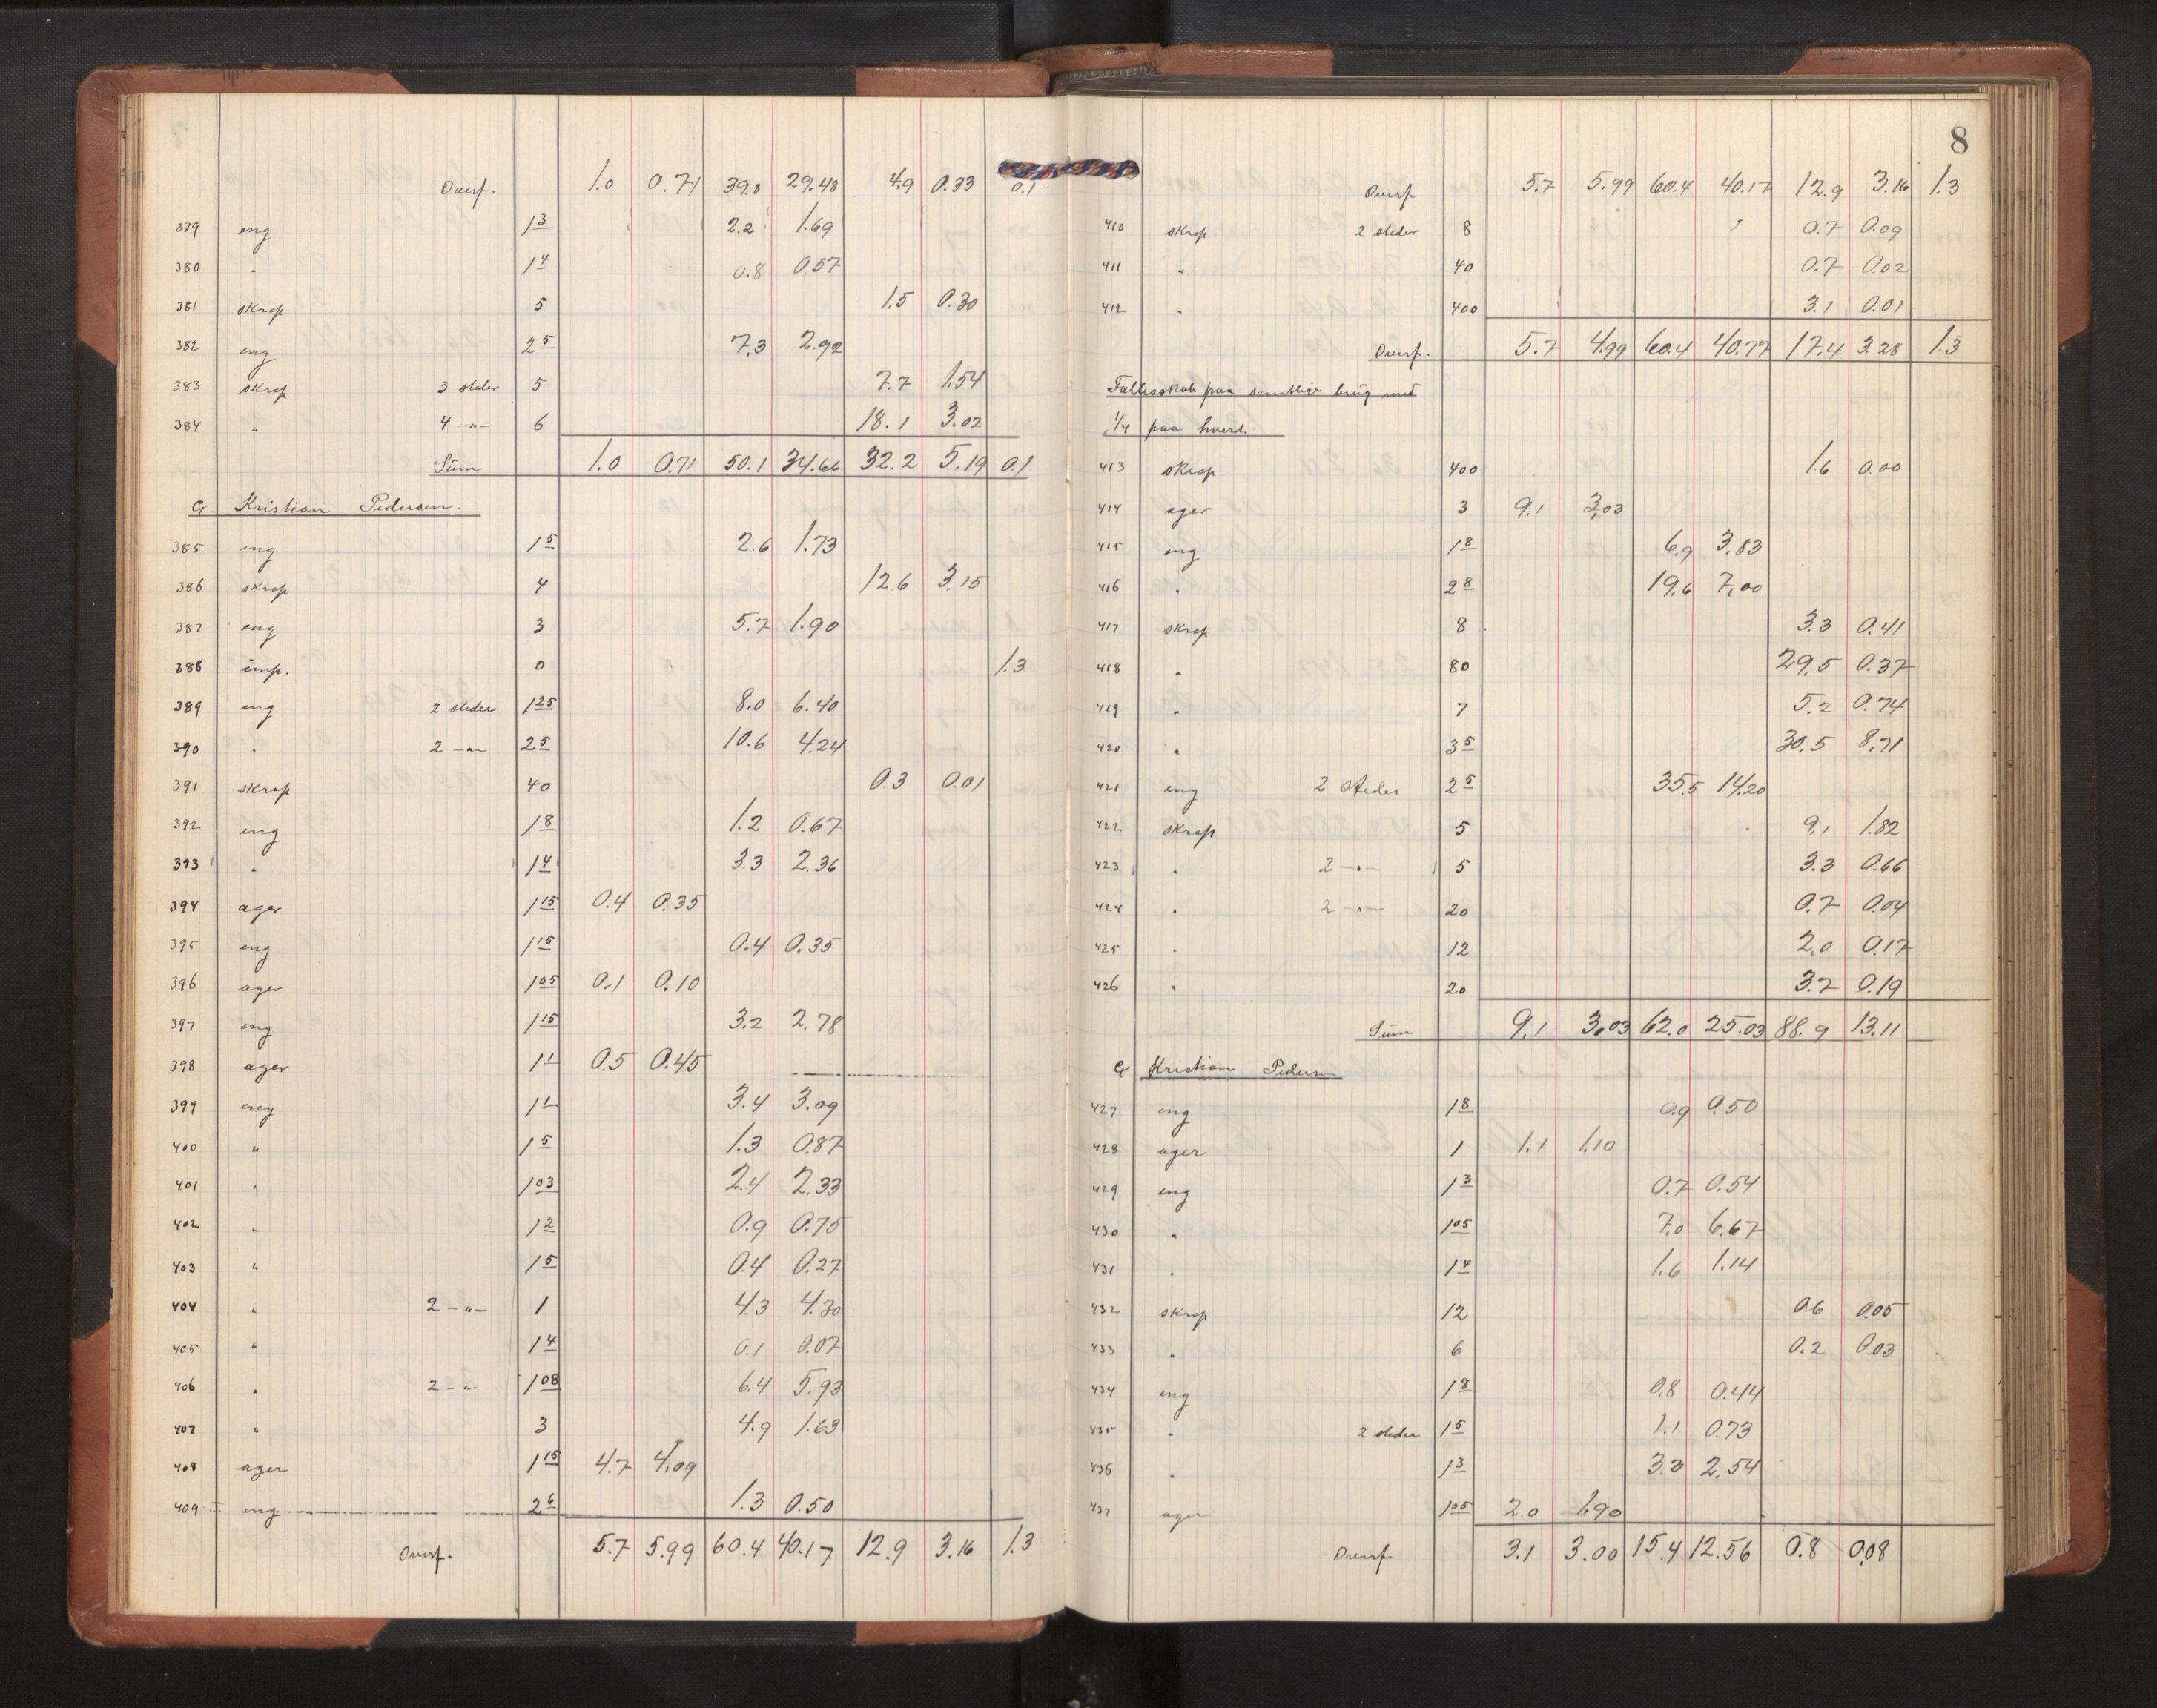 Overf. 1.0 0.71 39.8 29.48 4.9 0.33 0.1
379 eng 1 3 2.2 1.69
380 " 1 4 0.8 0.57
381 skrap 5 1.5 0.30
382 eng 2 5 7.3 2.92
383 skrap 3 steder 5 7.7 1.54
384 " 4 -"- 6 18.1 3.02
Sum 1.0 0.71 50.1 34.66 32.2 5.19 0.1
G Kristian Pedersen.
385 eng 1 5 2.6 1.73
386 skrap 4 12.6 3.15
387 eng 3 5.7 1.90
388 imp. 0 1.3
389 eng 2 steder 1 25 8.0 6.40
390 " 2 -"- 2 5 10.6 4.24
391 skrap 40 0.3 0.01
392 eng 1 8 1.2 0.67
393 " 1 4 3.3 2.36
394 ager 1 15 0.4 0.35
395 eng 1 15 0.4 0.35
396 ager 1 05 0.1 0.10
397 eng 1 15 3.2 2.78
398 ager 1 1 0.5 0.45
399 eng 1 1 3.4 3.09
400 " 1 5 1.3 0.87
401 " 1 03 2.4 2.33
402 " 1 2 0.9 0.75
403 " 1 5 0.4 0.27
404 " 2 -"- 1 4.3 4.30
405 " 1 4 0.1 0.07
406 " 2 -"- 1 08 6.4 5.93
407 " 3 4.9 1.63
408 ager 1 15 4.7 4.09
409 eng 2 6 1.3 0.50
Overf. 5.7 5.99 60.4 40.17 12.9 3.16 1.3
8
Overf. 5.7 5.99 60.4 40.17 12.9 3.16 1.3
410 skrap 2 steder 8 0.7 0.09
411 " 40 0.7 0.02
412 " 400 3.1 0.01
Overf. 5.7 4.99 60.4 40.77 17.4 3.28 1.3
Fællesskab paa samtlige brug med
1/4 paa hverd.
413 skrap 400 1.6 0.00
414 ager 3 9.1 3.03
415 eng 1 8 6.9 3.83
416 " 2 8 19.6 7.00
417 skrap 8 3.3 0.41
418 " 80 29.5 0.37
419 " 7 5.2 0.74
420 " 3 5 30.5 8.71
421 eng 2 steder 2 5 35.5 14.20
422 skrap 5 9.1 1.82
423 " 2 -"- 5 3.3 0.66
424 " 2 -"- 20 0.7 0.04
425 " 12 2.0 0.17
426 " 20 3.7 0.19
Sum 9.1 3.03 62.0 25.03 88.9 13.11
G Kristian Pedersen
427 eng 1 8 0.9 0.50
428 ager 1 1.1 1.10
429 eng 1 3 0.7 0.54
430 " 1 05 7.0 6.67
431 " 1 4 1.6 1.14
432 skrap 12 0.6 0.05
433 " 6 0.2 0.03
434 eng 1 8 0.8 0.44
435 " 2 steder 1 5 1.1 0.73
436 " 1 3 3.3 2.54
437 ager 1 05 2.0 1.90
Overf. 3.1 3.00 15.4 12.56 0.8 0.08